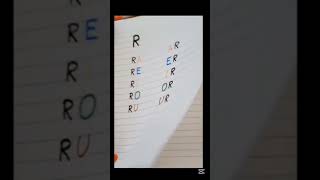 R
RA AR
RE ER
R R
RO OR
RU UR